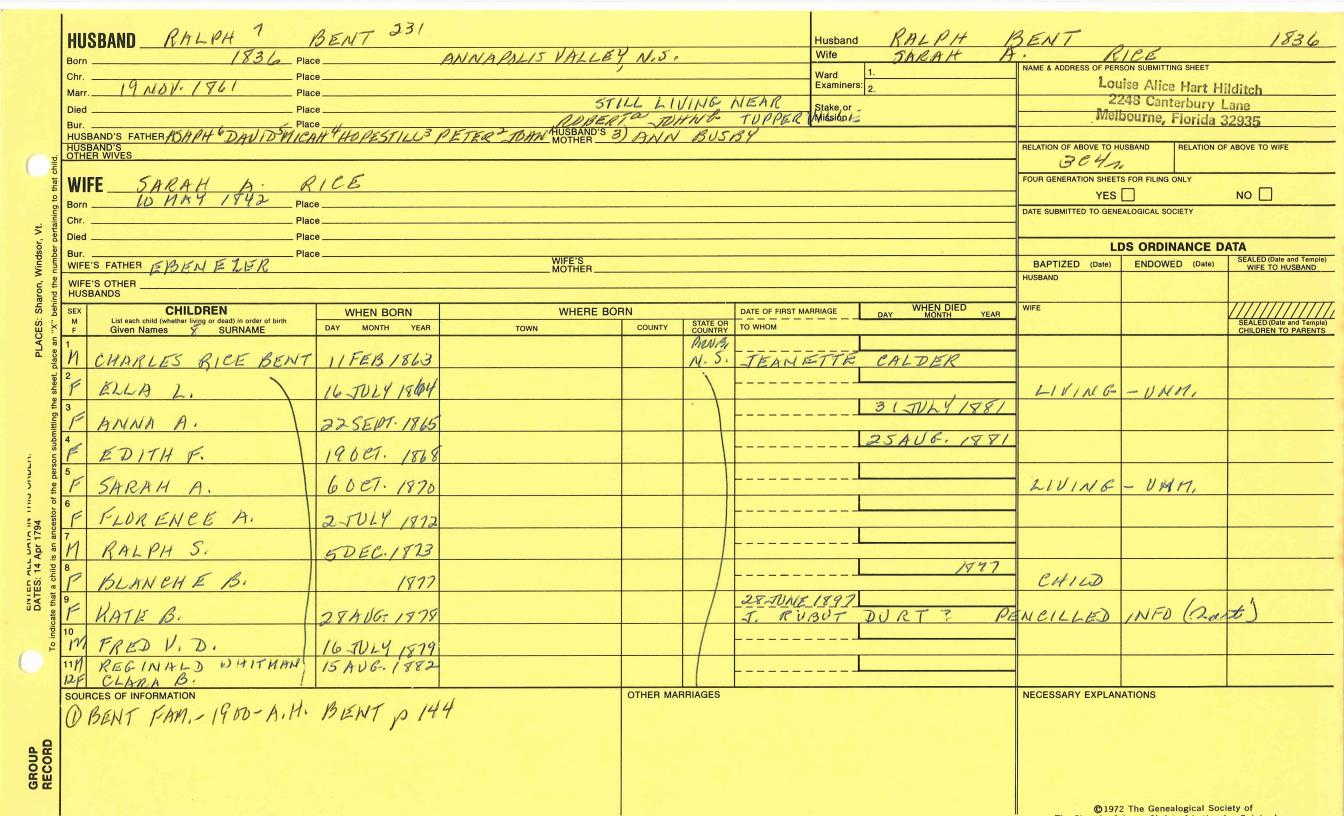 HUSBAND RALPH 7 BENT 231
Born 1836 Place ANNAPALIS VALLEY, N.S.
Chr. Place
Marr. 19 NOV. 1861 Place
Died Place STILL LIVING NEAR
Bur. Place ROBERT JOHN TUPPER
HUSBAND'S FATHER ASAPH 6 DAVID 5 MICAH 4 HOPESTILL 3 PETER 2 JOHN HUSBAND'S MOTHER 3) ANN BUSBY
HUSBAND'S OTHER WIVES
Husband RALPH BENT 1836
Wife SARAH A. RICE
Ward Examiners: 1.
2.
Stake or Mission
NAME & ADDRESS OF PERSON SUBMITTING SHEET
Louise Alice Hart Hilditch
2248 Canterbury Lane
Melbourne, Florida 32935
RELATION OF ABOVE TO HUSBAND RELATION OF ABOVE TO WIFE
3C4r
FOUR GENERATION SHEETS FOR FILING ONLY
YES NO
DATE SUBMITTED TO GENEALOGICAL SOCIETY
WIFE SARAH A. RICE
Born 10 MAY 1842 Place
Chr. Place
Died Place
Bur. Place
WIFE'S FATHER EBENEZER WIFE'S MOTHER
WIFE'S OTHER HUSBANDS
LDS ORDINANCE DATA
BAPTIZED (Date) ENDOWED (Date) SEALED (Date and Temple) WIFE TO HUSBAND
HUSBAND
WIFE
SEALED (Date and Temple) CHILDREN TO PARENTS
SEX M F
CHILDREN
List each child (whether living or dead) in order of birth
Given Names 8 SURNAME
WHEN BORN
DAY MONTH YEAR
WHERE BORN
TOWN COUNTY STATE OR COUNTRY
DATE OF FIRST MARRIAGE
TO WHOM
WHEN DIED
DAY MONTH YEAR
1 M CHARLES RICE BENT 11 FEB 1863 N.S. JEANETTE CALDER
2 F ELLA L. 16 JULY 1864 LIVING - UNM.
3 F ANNA A. 22 SEPT. 1865 31 JULY 1881
4 F EDITH F. 19 OCT. 1868 25 AUG. 1881
5 F SARAH A. 6 OCT. 1870 LIVING - UNM.
6 F FLORENCE A. 2 JULY 1872
7 M RALPH S. 5 DEC. 1873
8 F BLANCHE B. 1877 1877 CHILD
9 F KATE B. 28 AUG. 1878 28 JUNE 1897
J. RUBUT DURT? PENCILLED INFO
10 M FRED V. D. 16 JULY 1879
11 M REGINALD WHITMAN 15 AUG. 1882
12 F CLARA B.
SOURCES OF INFORMATION
① BENT FAM. - 1900 - A.H. BENT p 144
OTHER MARRIAGES
NECESSARY EXPLANATIONS
©1972 The Genealogical Society of
PLACES: Sharon, Windsor, Vt.
DATES: 14 Apr 1794
To indicate that a child is an ancestor of the person submitting the sheet, place an "X" behind the number pertaining to that child.
GROUP RECORD